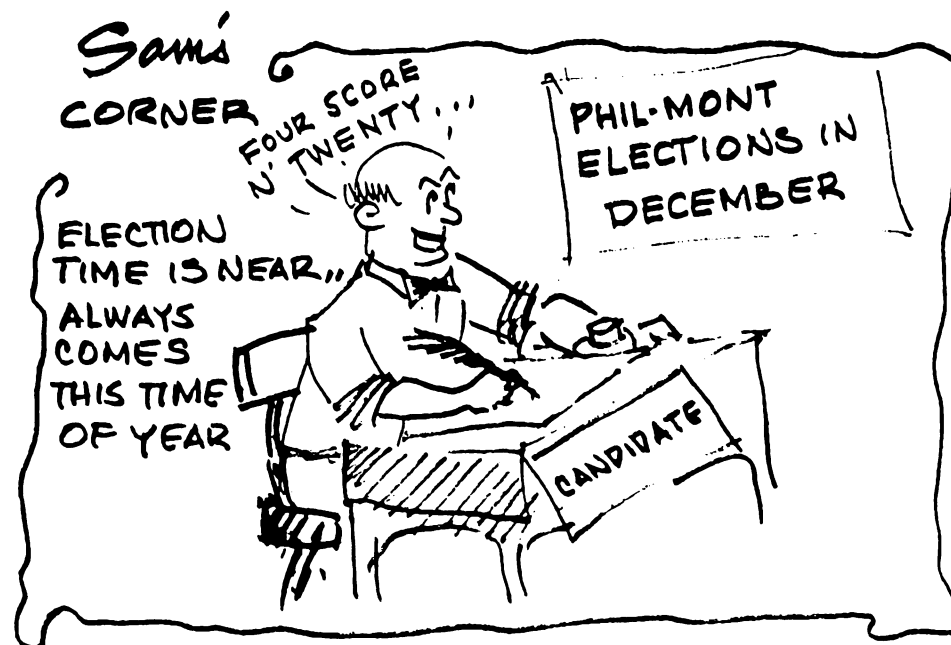 Sam's
CORNER
FOUR SCORE
N' TWENTY...
PHIL-MONT
ELECTIONS IN
DECEMBER
ELECTION
TIME IS NEAR..
ALWAYS
COMES
THIS TIME
OF YEAR
CANDIDATE